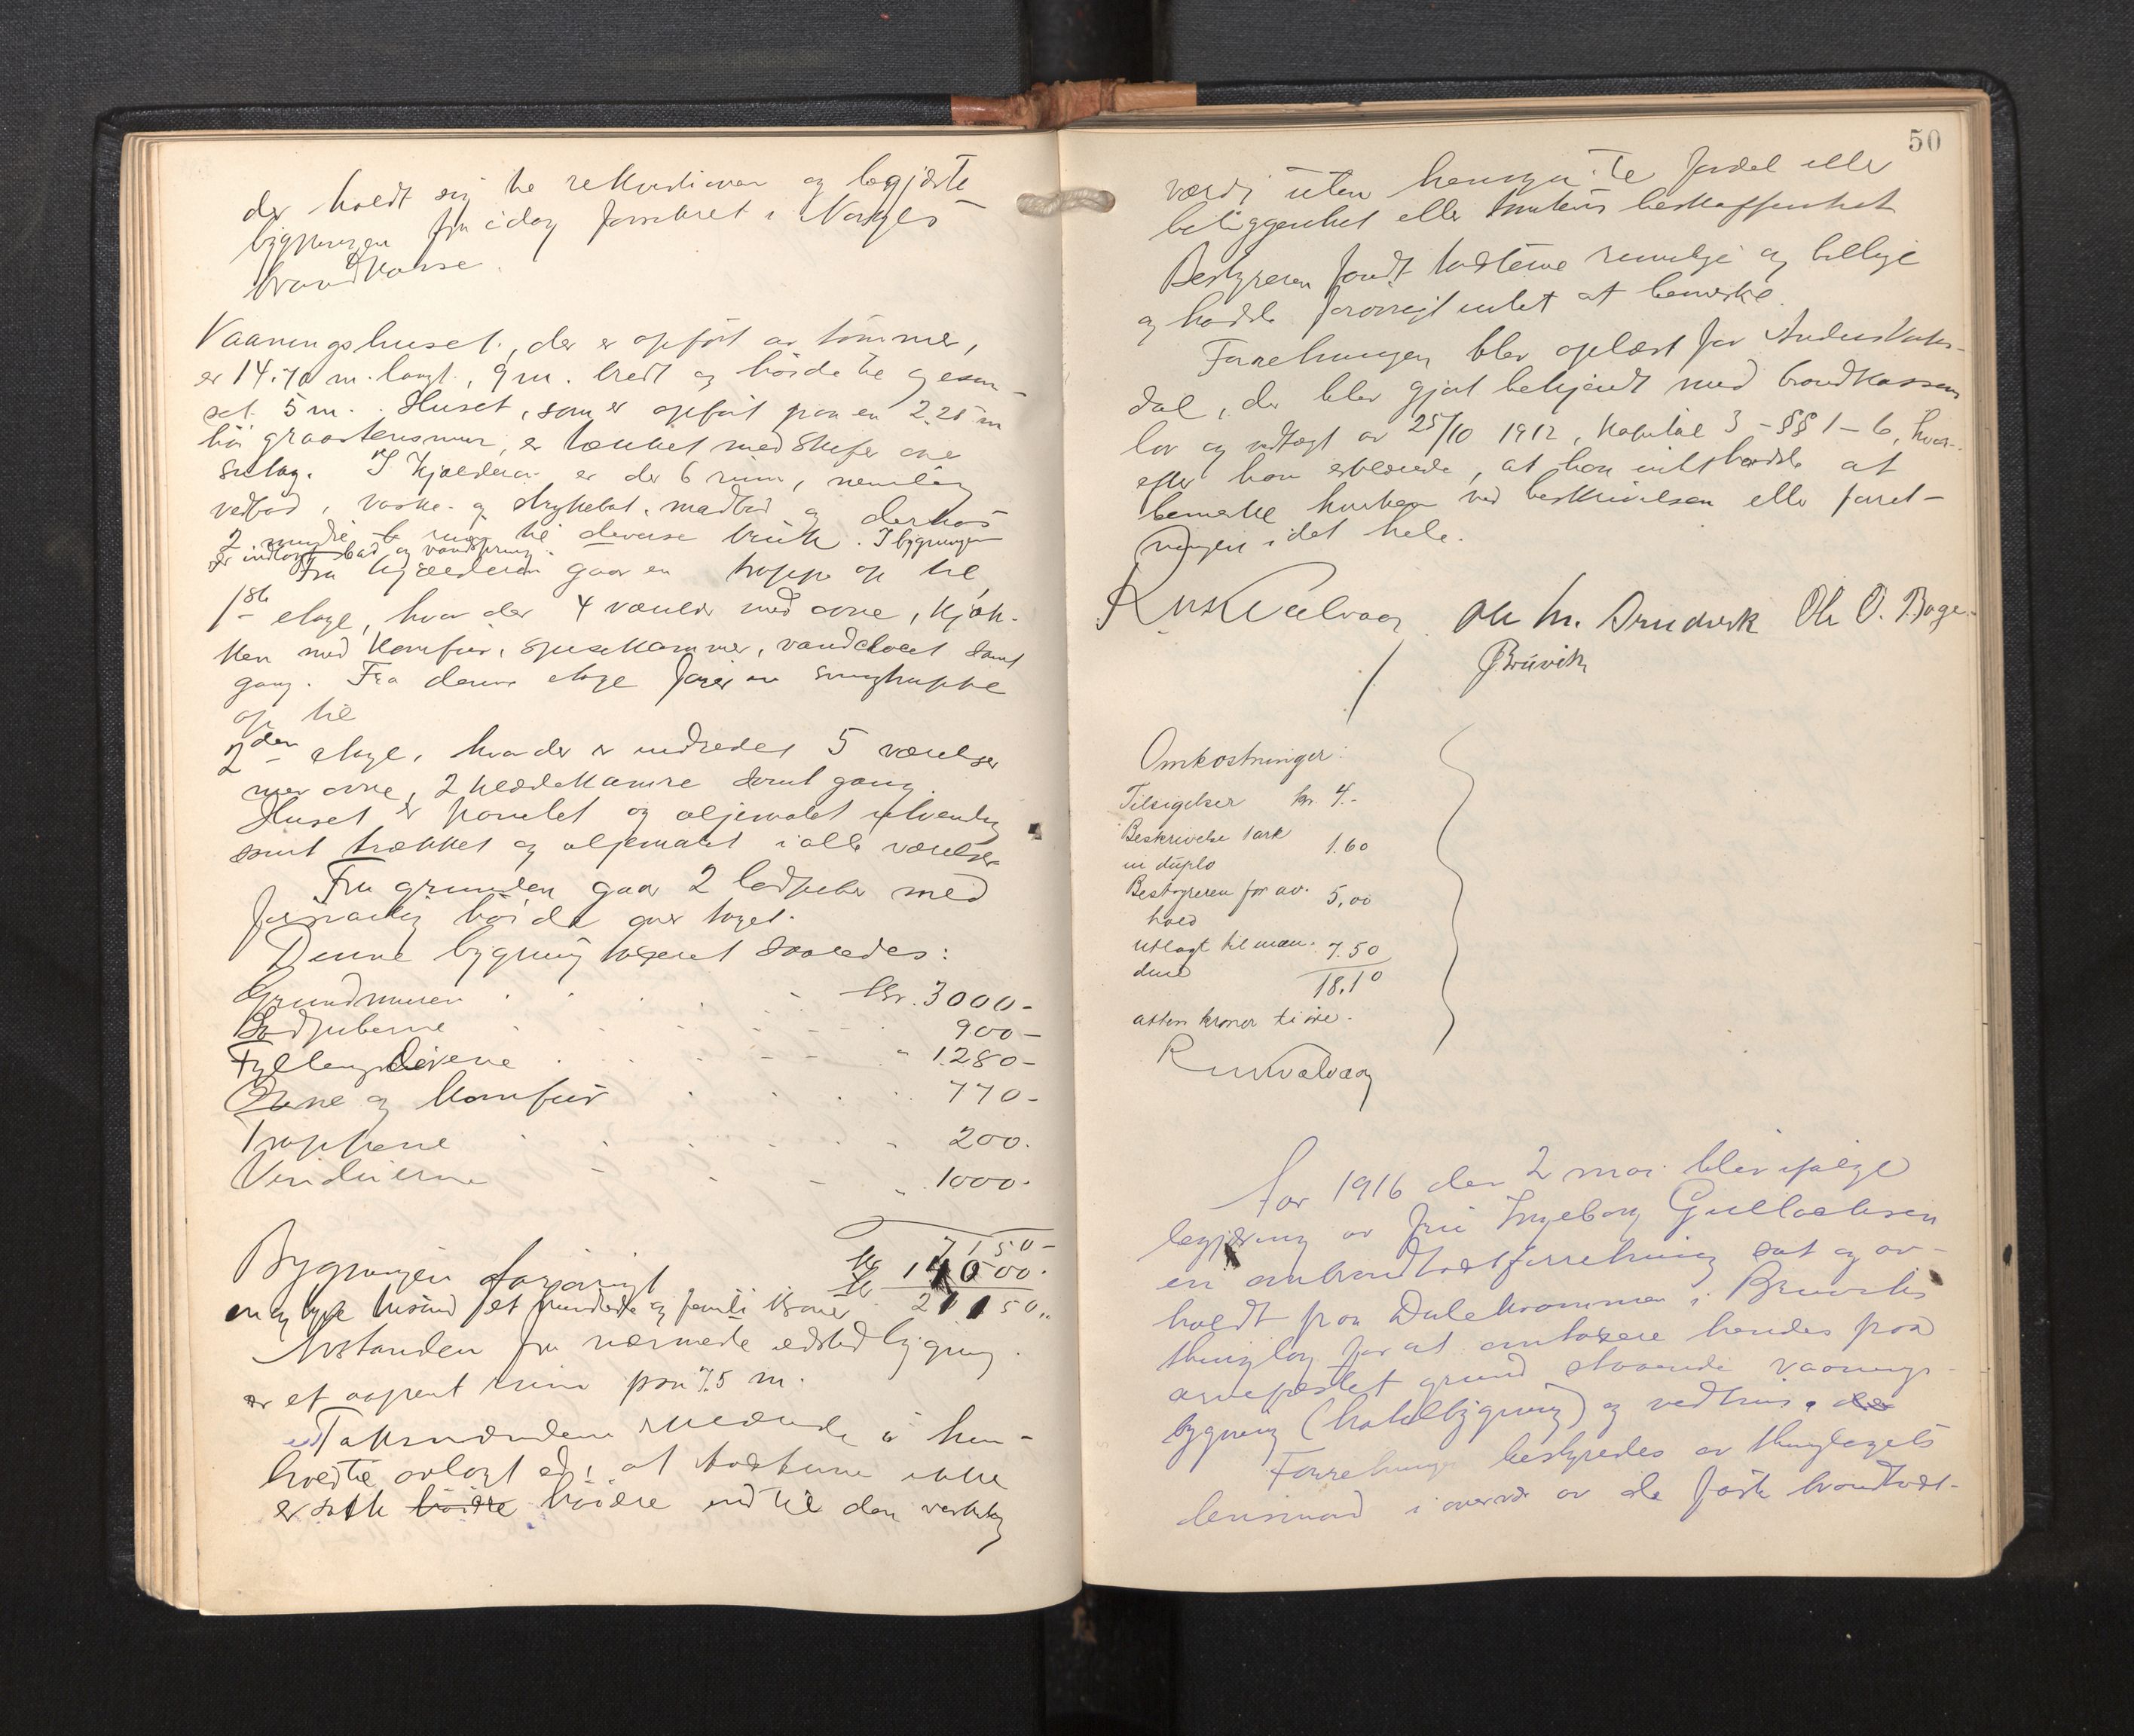 der holdt sig til rekvisitionen og begjærte
bygningen fra idag forsikret i Norges
brandkasse.
Vaaningshuset, der er opført av tømmer,
er 14.70 m. langt, 9 m. bredt og høide til gesim-
set 5 m. Huset, som er opført paa en 2.25 m
høi graastensmur, er tækket med skifer over
sutag. I kjælderen er der 6 rum, nemlig
vedbod, vaske- og strykebod, madbod og derhos
2 mindre rum til diverse bruk. I bygningen
er indlagt bad og vandspring.
Fra kjælderen gaar en trappe op til
1ste etage, hvor der 4 værelser med ovne, kjøk-
ken med komfur, spisekammer, vandcloset samt
gang. Fra denne etage fører en svingtrappe
op til
2den etage, hvor der er indredet 5 værelser
med ovne, 2 klædekamre samt gang.
Huset er panelet og oljemalet utvendig
samt trækket og oljemalet i alle værelser
Fra grunden gaar 2 ledpiber med
fornøden høide over taget.
Denne bygning taxeret saaledes:
Grundmuren kr. 3000-
Ledpiberne 900-
Fyllingsdørene " 1280-
Ovne og komfur 770-
Trappene 200.
Vinduerne " 1000.
7150-
Bygningen forøvrigt kr 14000.
en og tyve tusind et hundrede og femti kroner kr 21150..
Avstanden fra nærmeste ildsted bygning
er et aapent rum paa 7.5 m.
Taksmændene erklærede i hen-
hold til avlagt ed, at taksterne ikke
er satte høiere høiere end til den virkelig
50
værdi uten hensyn til fordel eller
beliggenhet eller tomtens beskaffenhet
Bestyreren fandt taksterne rimelige og billige
og hadde forøvrigt intet at bemerke.
Forretningen blev oplæst for Anders
dal, der blev gjort bekjendt med brandkassens
lov og vedtægt av 25/10 1912, kapitel 3 - §§ 1-6, hvor-
efter han erklærede, at han intet hadde at
bemerke hverken ved beskrivelsen eller forret-
ningen i det hele.
Ole O. Boge
Bruvik
Omkostninger:
Tilsigelser kr. 4.-
Beskrivelse 1 ark 1.60
in duplo
Bestyreren for av- 5,00
hold
Utlagt til mæn- 7.50
dene
18.10
atten kroner ti øre.
Aar 1916 den 2 mai blev ifølge
begjæring av fru Ingeborg Gullachsen
en ombrandtakstforretning sat og av-
holdt paa Dalekvammen i Bruviks
thinglag for at omtaxere hendes paa
arvefæstet grund staaende vaanings-
bygning (hotelbygning) og vedhus.
Forretningen bestyredes av thinglagets
lensmand i overvær av de faste brandtakst-